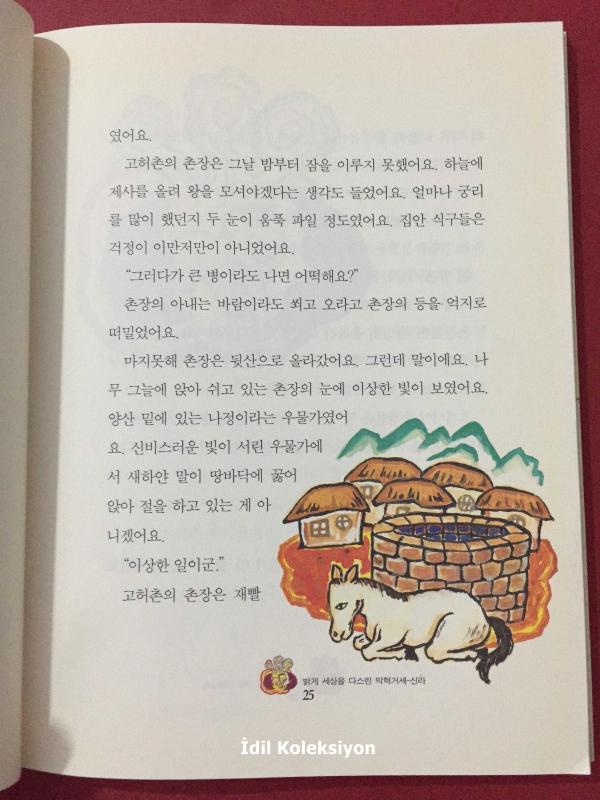 였어요.
고허촌의 촌장은 그날 밤부터 잠을 이루지 못했어요. 하늘에
제사를 올려 왕을 모셔야겠다는 생각도 들었어요. 얼마나 궁리
를 많이 했던지 두 눈이 움푹 파일 정도였어요. 집안 식구들은
걱정이 이만저만이 아니었어요.
“그러다가 큰 병이라도 나면 어떡해요?”
촌장의 아내는 바람이라도 쐬고 오라고 촌장의 등을 억지로
떠밀었어요.
마지못해 촌장은 뒷산으로 올라갔어요. 그런데 말이에요. 나
무 그늘에 앉아 쉬고 있는 촌장의 눈에 이상한 빛이 보였어요.
양산 밑에 있는 나정이라는 우물가였어
요. 신비스러운 빛이 서린 우물가에
서 새하얀 말이 땅바닥에 꿇어
앉아 절을 하고 있는 게 아
니겠어요.
“이상한 일이군.”
고허촌의 촌장은 재빨
밝게 세상을 다스린 박혁거세-신라
25
İdil Koleksiyon